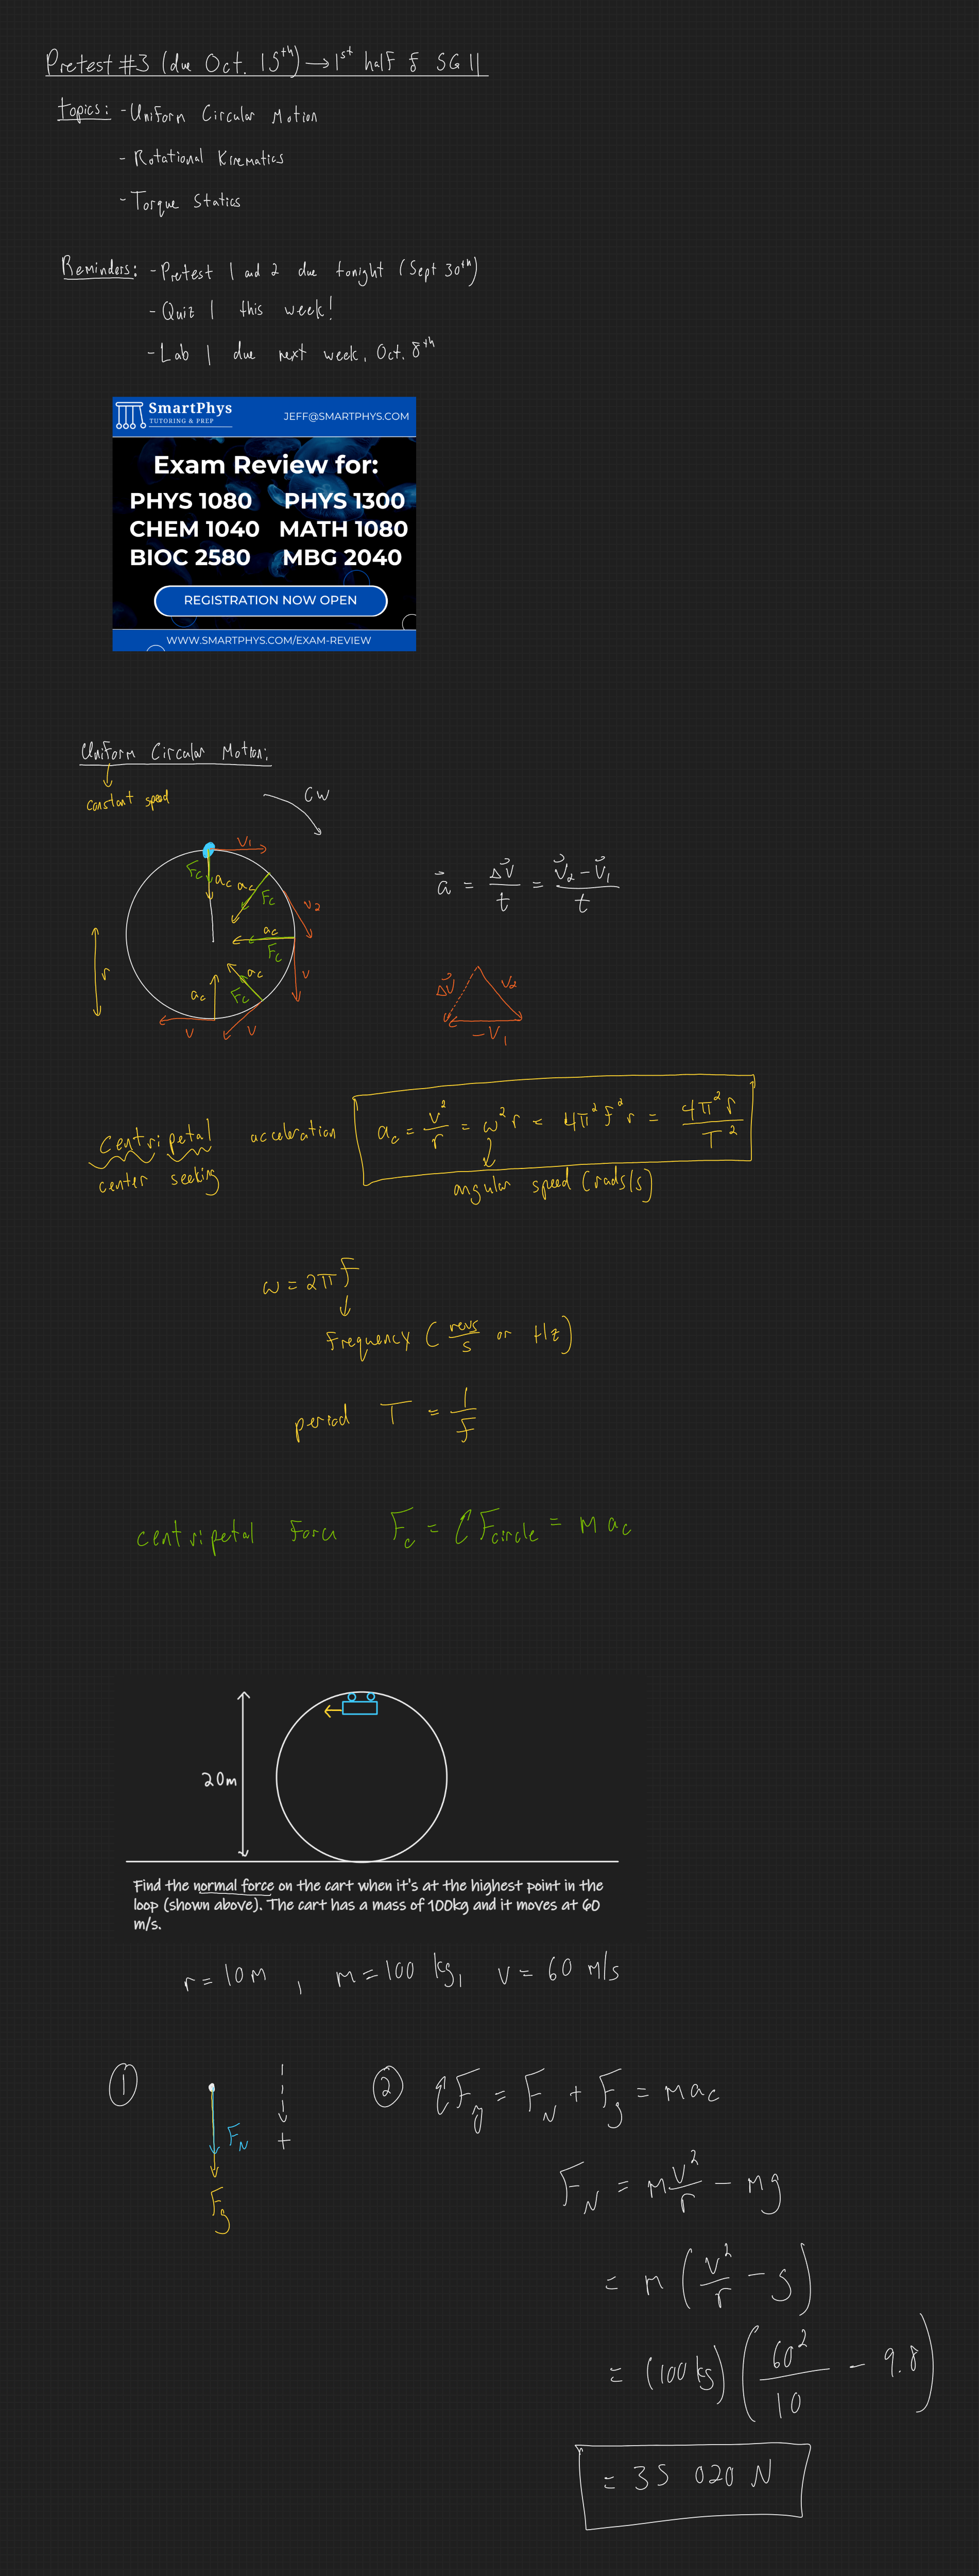 Pretest #3 (due Oct. 15th) → 1st half of SG 11
Topics: - Uniform Circular Motion
- Rotational Kinematics
- Torque Statics
Reminders: - Pretest 1 and 2 due tonight (Sept 30th)
- Quiz 1 this week!
- Lab 1 due next week, Oct. 8th
SmartPhys
TUTORING & PREP
JEFF@SMARTPHYS.COM
Exam Review for:
PHYS 1080 PHYS 1300
CHEM 1040 MATH 1080
BIOC 2580 MBG 2040
REGISTRATION NOW OPEN
WWW.SMARTPHYS.COM/EXAM-REVIEW
Uniform Circular Motion:
constant speed
CW
V₁
Fc ac ac Fc
V₂
ac
Fc
r
V
ac
Fc
ac
V V
a⃗ = Δv⃗/t = (v⃗₂ - v⃗₁)/t
Δv⃗ V₂
-V₁
centripetal acceleration ac = v²/r = ω²r = 4π²f²r = 4π²r/T²
center seeking
angular speed (rads/s)
ω = 2πf
frequency (revs/s or Hz)
period T = 1/f
centripetal force Fc = ΣFcircle = mac
20m
Find the normal force on the cart when it's at the highest point in the
loop (shown above). The cart has a mass of 100kg and it moves at 60
m/s.
r = 10m, m = 100 kg, v = 60 m/s
① FN Fg +
② ΣFy = FN + Fg = mac
FN = mv²/r - mg
= m(v²/r - g)
= (100kg)(60²/10 - 9.8)
= 35 020 N